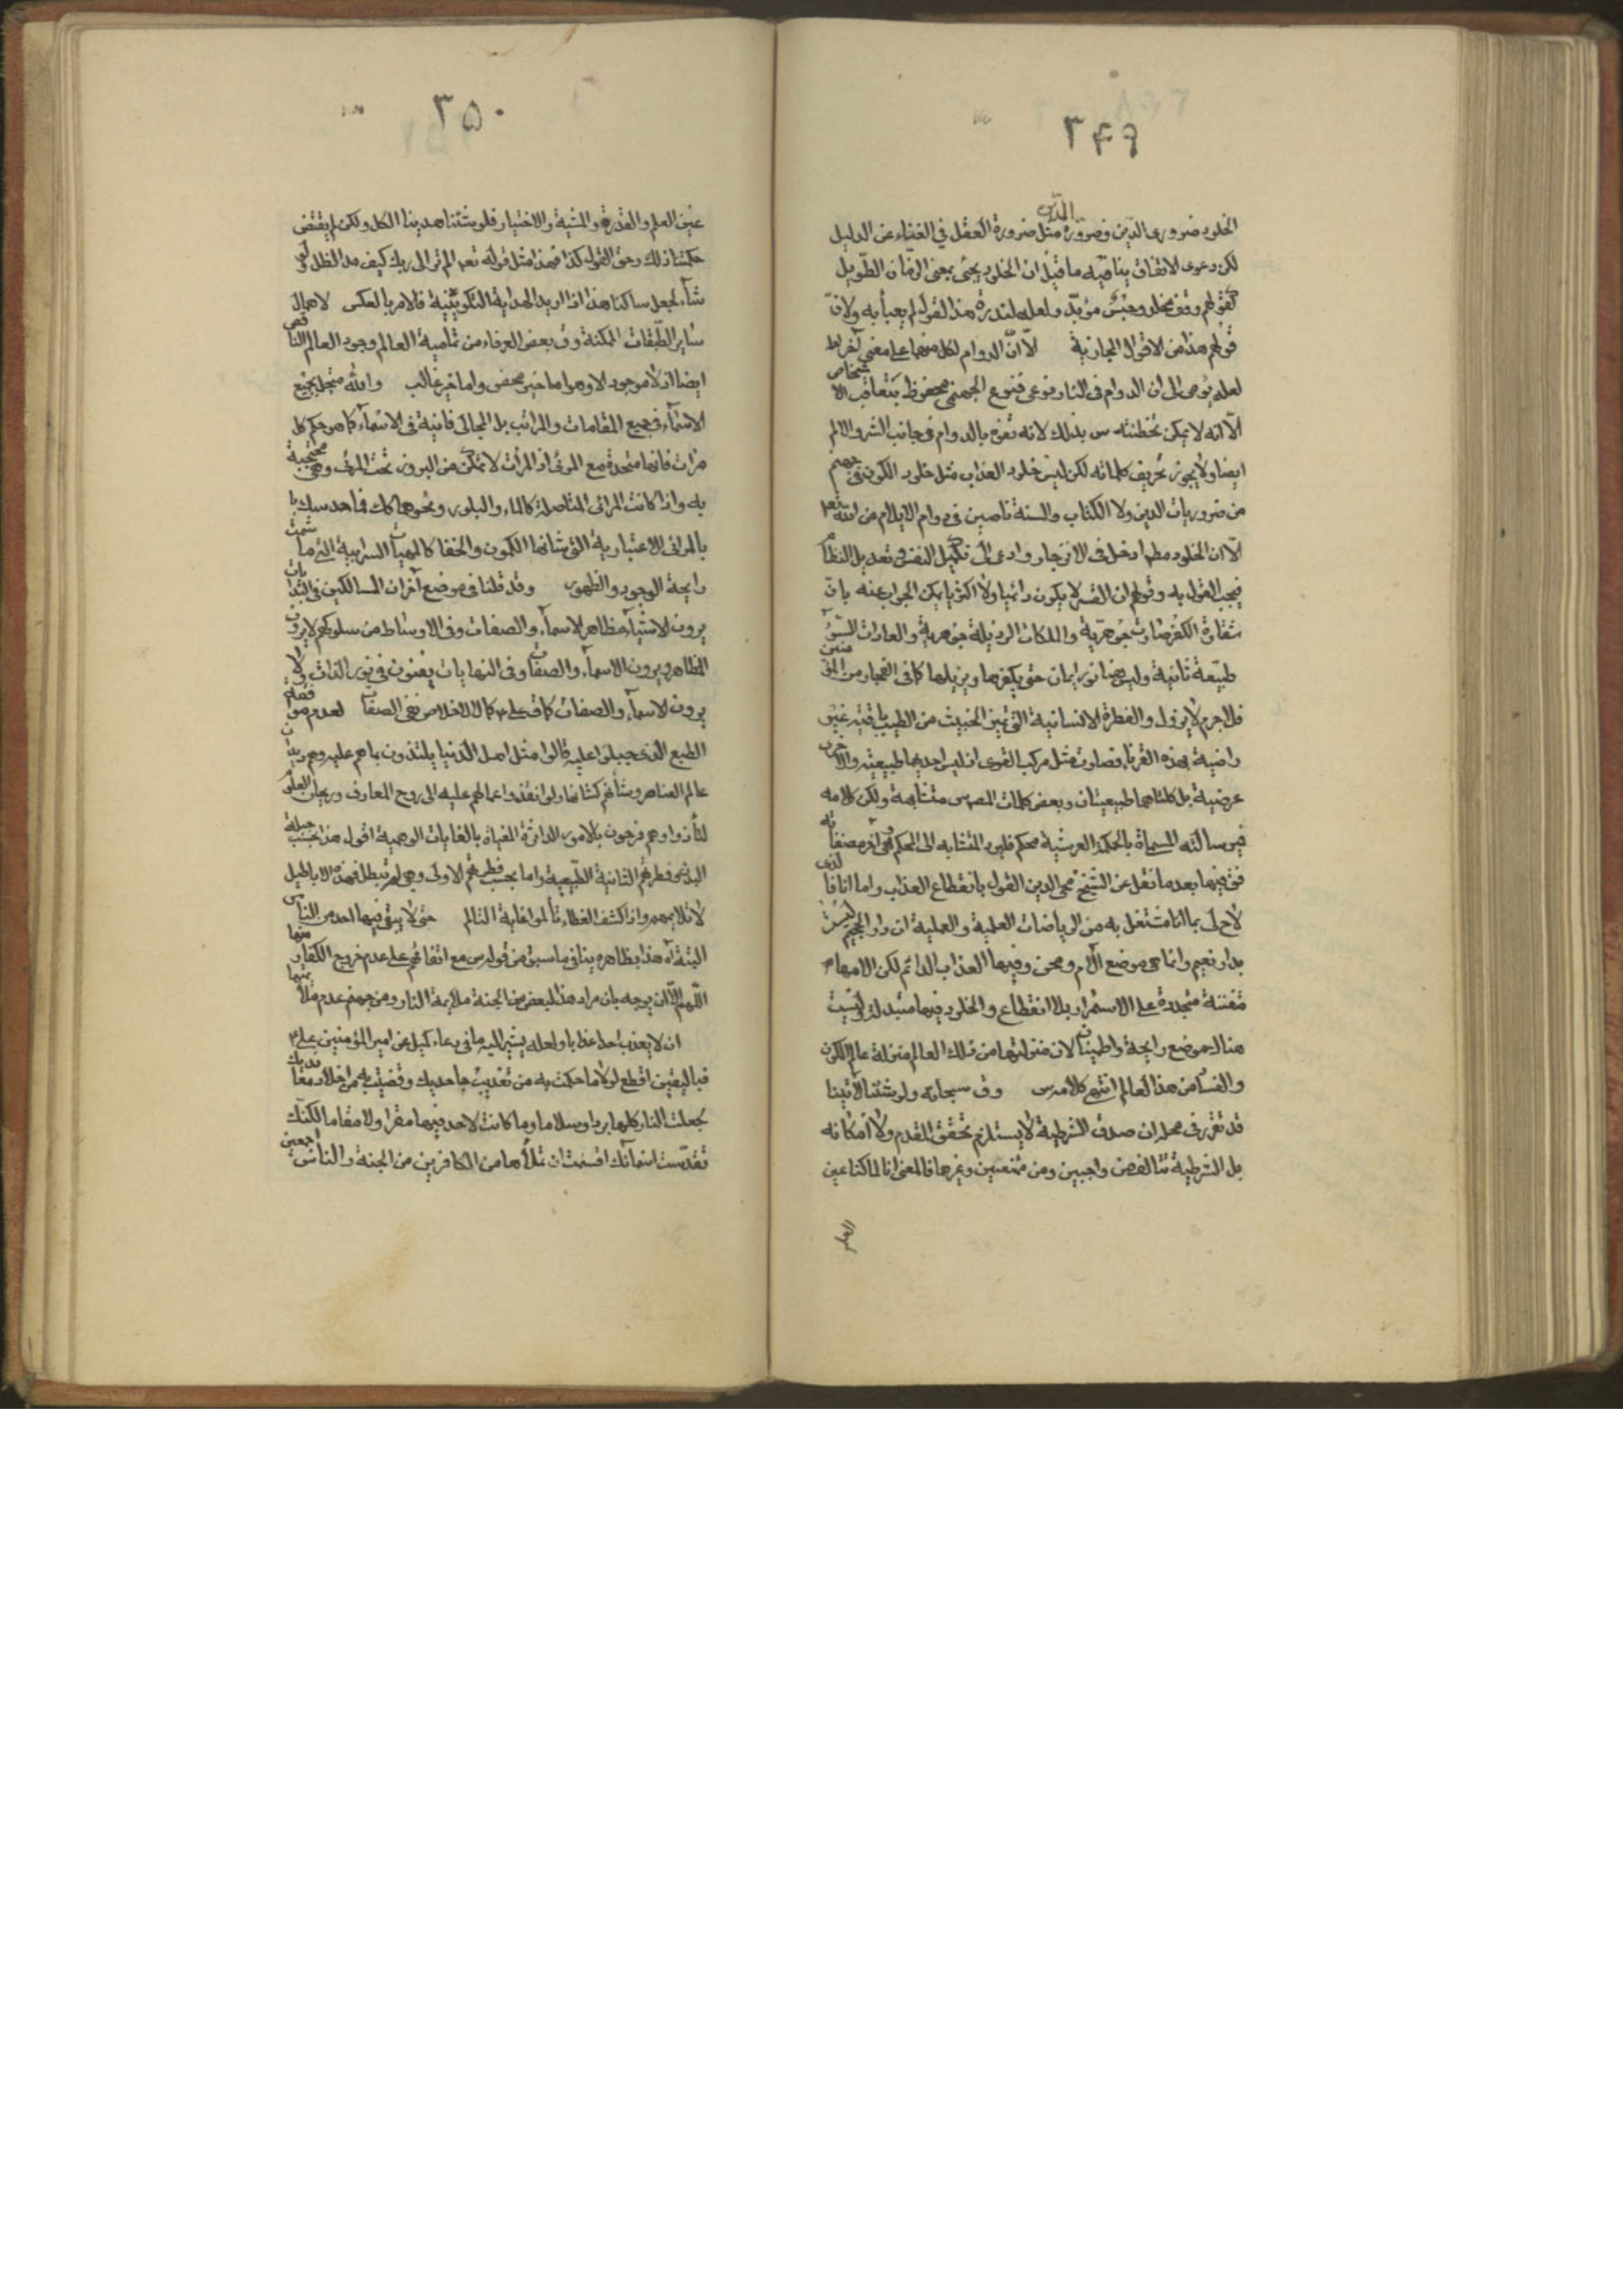 ۳۴۹
الخلود ضروری الدین وضرورة الدین مثل ضرورة العقل فی الغناء عن الدلیل
لکن دعوی الاتفاق ینافیه ما قیل ان الخلود یجئ بمعنی الزمان الطویل
کقولهم وقف مخلد وحبس مؤبد ولعله لندرة هذا القول لم یعبأ به ولان
قولهم هذا من الاقوال المجازیة الا ان الدوام لکل منهما علی معنی آخر
لعله یومی الی ان الدوام فی النار نوعی فنوع الجهنمی محفوظ بتعاقب الاشخاص
الا انه لا یمکن تخطئته س بذلک لانه تفوه بالدوام فی جانب الشر والالم
ایضا ولا یجوز تحریف کلماته لکن لیس خلود العذاب مثل خلود الکون فی جهنم
من ضروریات الدین ولا الکتاب والسنة ناصین فی دوام الایلام من الله تعم
الا ان الخلود مطم ادخل فی الانزجار وادعی الی تکمیل النفس وتعدیل النظام
فیجب القول به وقولهم ان القسر لا یکون دائمیا ولا اکثریا یمکن الجواب عنه بان
شقاوة الکفر صارت جوهریة والملکات الرذیلة جوهریة والعادات السوء
طبیعة ثانیة ولیس هنا نور ایمان حتی یکفرها ویزیلها کما فی الفجار من المؤمنین
فلا جرم لا یزول والفطرة الانسانیة التی تمیز الخبیث من الطیب باقیة غیر
راضیة بهذه القرناء فصارت مثل مرکب القوی اذ لیس احدیهما طبیعیة والاخری
عرضیة بل کلتاهما طبیعیتان وبعض کلمات المص س متشابهة ولکن کلامه
فی رسالته المسماة بالحکمة العرشیة محکم فلیرد المتشابه الی المحکم وهی آخر مصنفاته
فق فیها بعد ما نقل عن الشیخ محی الدین القول بانقطاع العذاب واما انا فالذی
لاح لی بما انا مشتغل به من الریاضات العلمیة والعملیة ان دار الجحیم لیست
بدار نعیم وانما هی موضع الآلام ومحن وفیها العذاب الدائم لکن الامها
متفننة متجددة علی الاستمرار بلا انقطاع والجلود فیها متبدلة ولیست
هناک موضع راحة واطمینان لان منزلتها من ذلک العالم منزلة عالم الکون
والفساد من هذا العالم انتهی کلامه س وق سبحانه ولو شئنا لآتینا
قد تقرر فی محله ان صدق الشرطیة لا یستلزم تحقق المقدم ولا امکانه
بل الشرطیة تتالف من واجبین ومن ممتنعین وغیرها فالمعنی انا لما کنا عین
العلم
۳۵۰
عین العلم والقدرة والمشیة والاختیار فلو شئنا هدینا الکل ولکن لم یقتض
حکمتنا ذلک وحق القول کذا فهذا مثل قوله تعم الم تر الی ربک کیف مد الظل ولو
شاء لجعله ساکنا هذا اذا ارید الهدایة التکوینیة فالامر بالعکس لاهمال
سایر الطبقات الممکنة وق بعض العرفاء من تمامیة العالم وجود العالم الناقص
ایضا اذ لا موجود الا وهو اما خیر محض واما خیر غالب والله متجل بجمیع
الاسماء فی جمیع المقامات والمراتب بل المجالی فانیة فی الاسماء کما هو حکم کل
مرآت فانها متحدة مع المرئی اذ المرآت لا تمکن من البروز تحت المرئی وهی محتجبة
به واذا کانت المرائی المتاصلة کالماء والبلور ونحوهما کک فما حدسک
بالمرائی الاعتباریة التی شانها الکمون والخفا کالمهیات السرابیة التی ما شمت
رایحة الوجود والظهور وقد قلنا فی موضع آخر ان السالکین فی البدایات
یرون الاشیاء مظاهر الاسماء والصفات وفی الاوساط من سلوکهم لا یرون
المظاهر ویرون الاسماء والصفات وفی النهایات یفنون فی نور الذات ولا
یرون الاسماء والصفات کما ق علی ع کمال الاخلاص نفی الصفات لعدم موافقة
الطبع الذی جبلوا علیه قالوا مثل اهل الدنیا یلتذون بما هم علیه وهم دیدان
عالم العناصر وشانهم کشانها ولو انقذوا عما هم علیه الی روح المعارف وریحان العلوم
لتاذوا وهم فرحون بالامور الداثرة المغیاة بالغایات الوهمیة اقول هذا بحسب جبلة
البدن وفطرتهم الثانیة الطبیعیة واما بحسب فطرتهم الاولی وهی لم تبطل فهذه الاباطیل
لا تلایمهم واذا کشف الغطاء تألموا غایة التالم حتی لا یبقی فیها احد من الناس
البتة آه هذا بظاهره ینافی ما سبق من قوله س مع اتفاقهم علی عدم خروج الکفار منها
اللهم الا ان یوجه بان مراد هذا البعض من الجنة ملایمة النار ومن جهنم عدم ملایمتها
ان لا یعذب احدا عذابا ولعله یشیر الیه ما فی دعاء کمیل عن امیر المؤمنین علی ع
فبالیقین اقطع لو لا ما حکمت به من تعذیب جاحدیک وقضیت به من اخلاد معاندیک
لجعلت النار کلها بردا وسلاما وما کانت لاحد فیها مقرا ولا مقاما لکنک
تقدست اسمائک اقسمت ان تملأها من الکافرین من الجنة والناس اجمعین